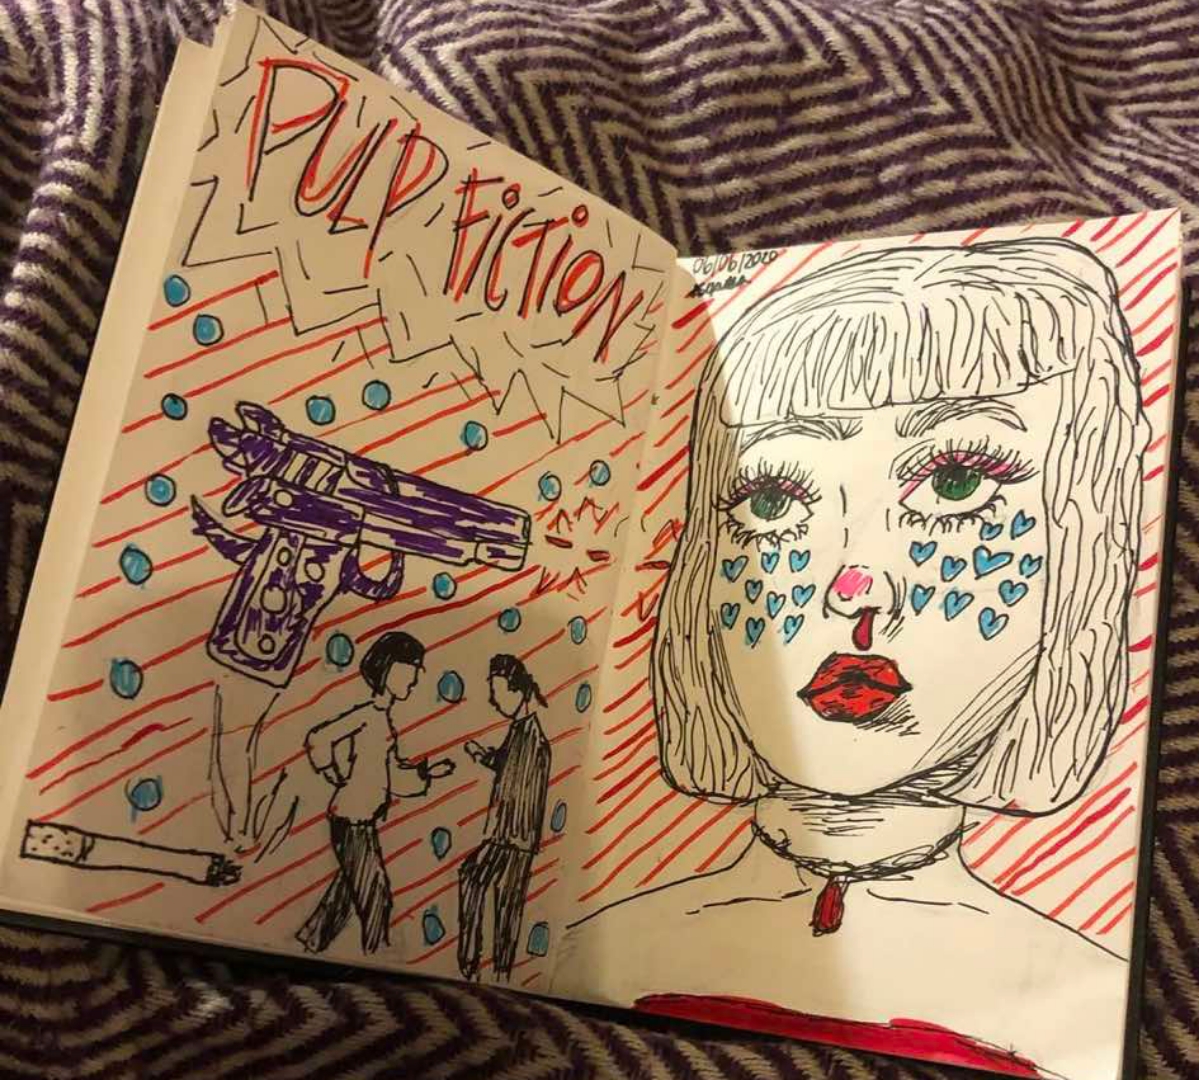 PULP FICTION
06/06/2020